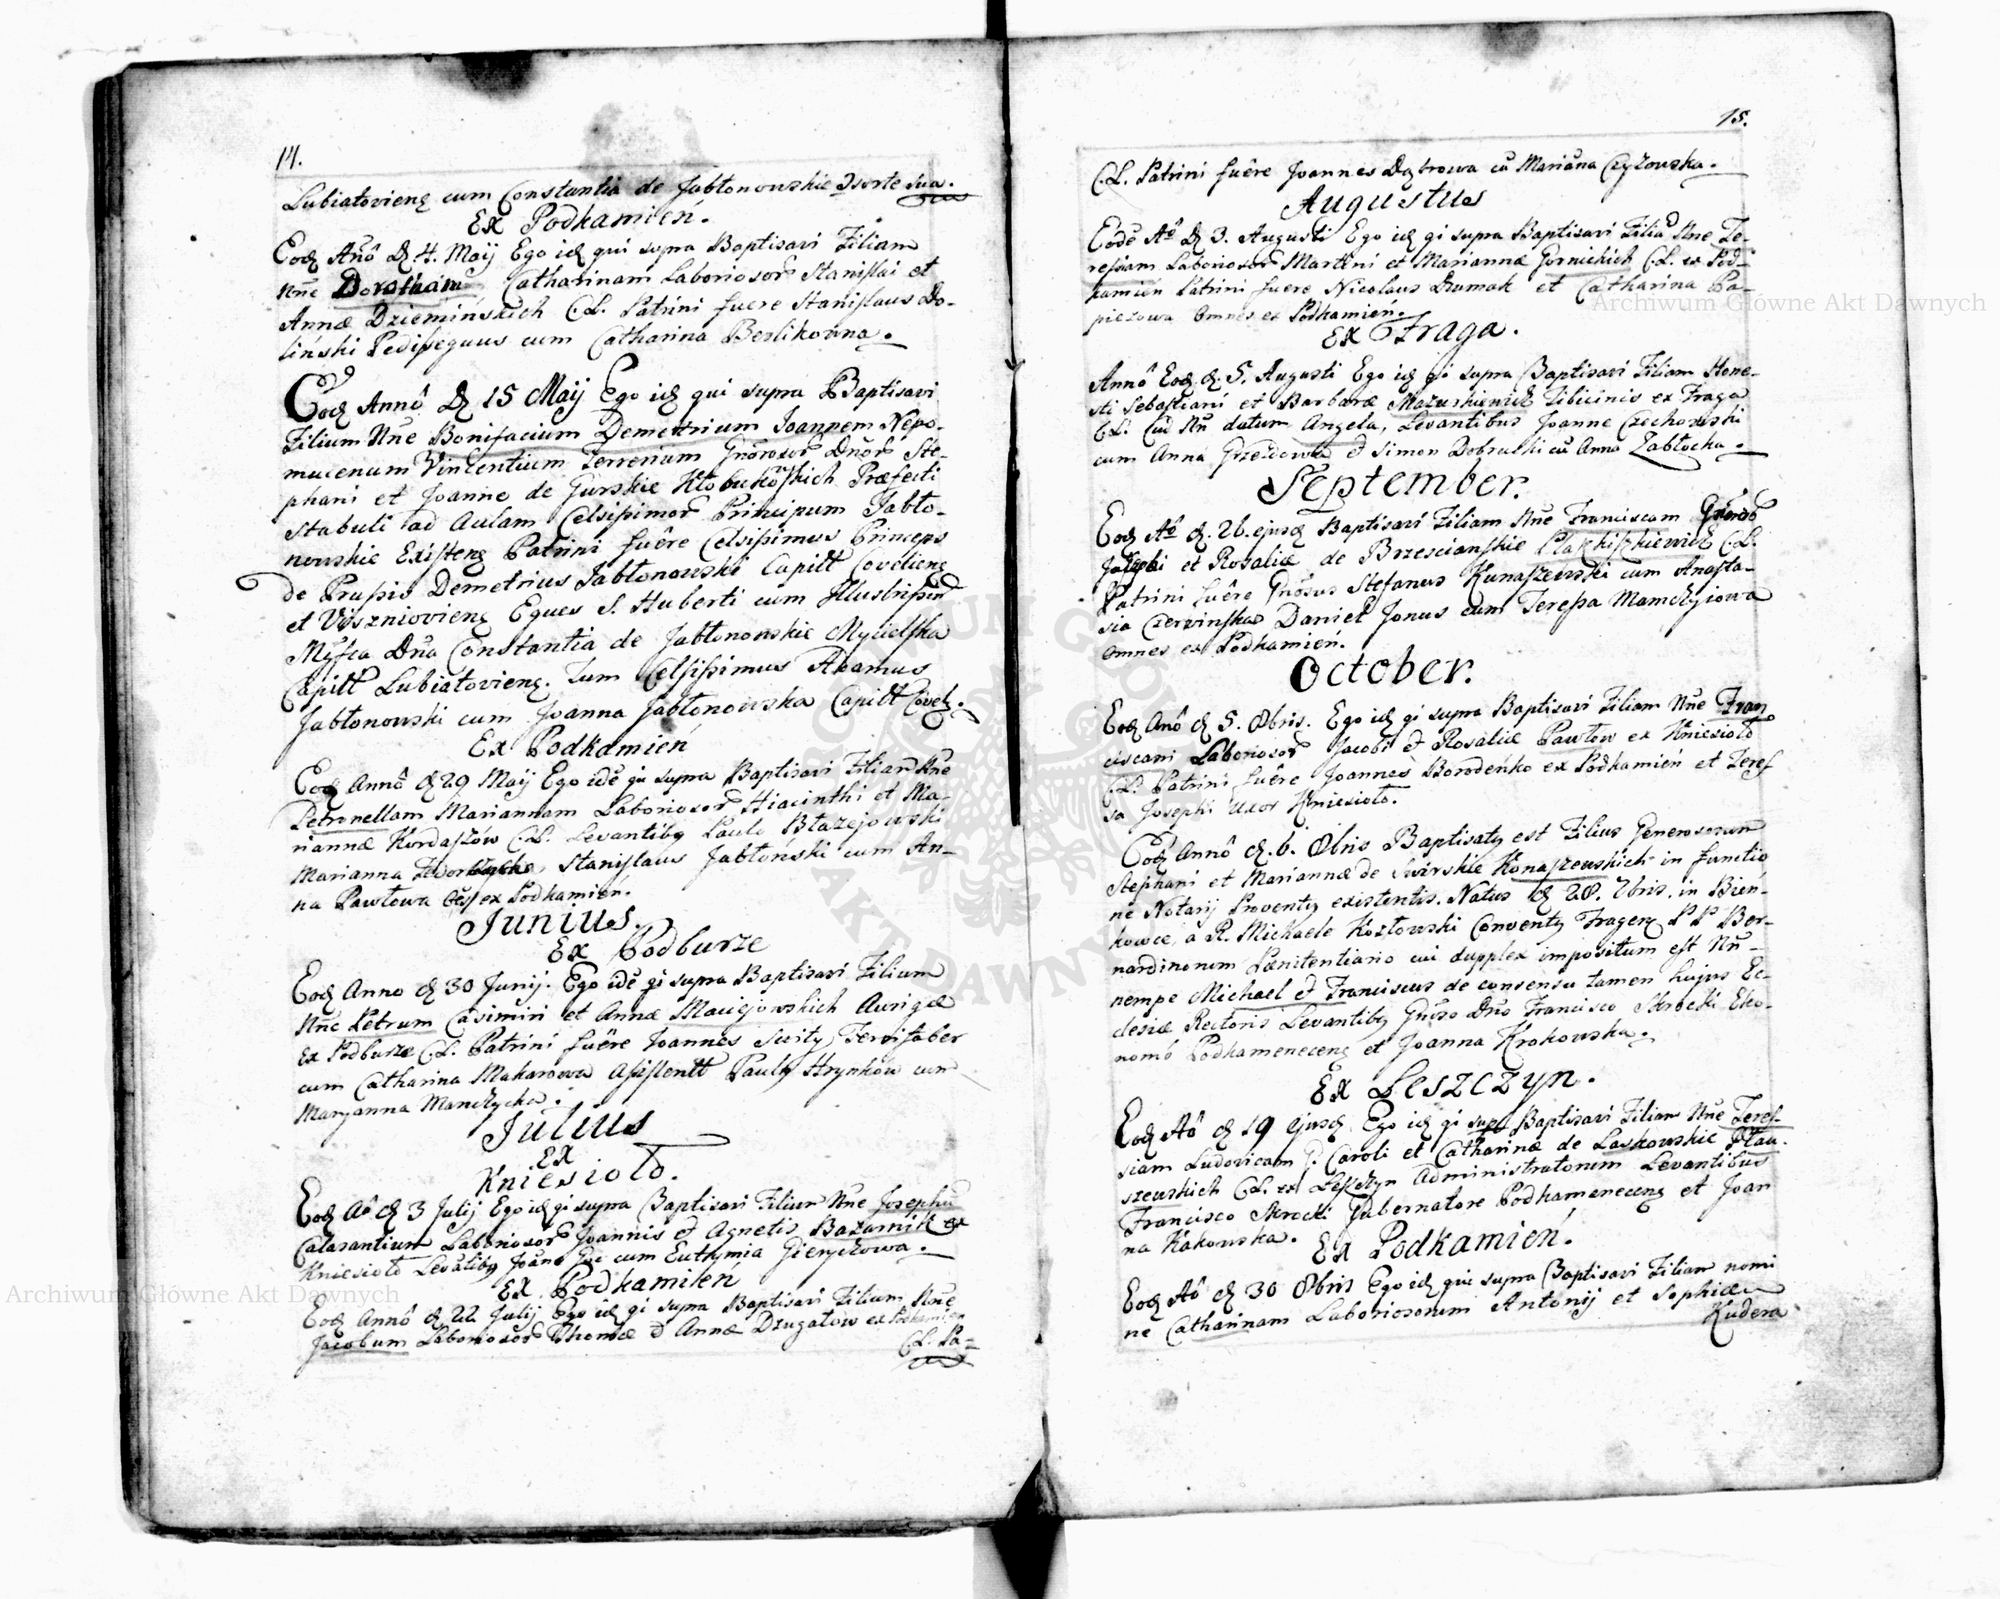 14.
Lubiatoviens cum Constantia de Jabłonowskie Dsorte sua.
Ex Podkamień.
Eod Anô D. 4. Maij Ego id qui supra Baptisavi Filiam
Nne Catharinam Laboriosor Stanislai et
Annæ Dziemińskich C.L. Patrini fuere Stanislaus Do-
liński Pedissequus cum Catharina Berlikowna.
Eod Annô D 15 Maij Ego id qui supra Baptisavi
Filium Nne Bonifacium Demetrium Joannem Nepo-
mucenum Vincentium Gnôrosor Dnôr Ste-
phani et Joannæ de Gurskie Præfecti
Stabuli ad Aulam Celsissimor Principum Jabło-
nowskie Existens Patrini fuêre Celsissimus Princeps
de Prussis Demetrius Jabłonowski Capitt Coveliens
et Viszniowiens Eques S. Huberti cum
Dna Constantia de Jabłonowskie Mycielska
Capitt Lubiatoviens. Tum Celsissimus Adamus
Jabłonowski cum Joanna Jabłonowska Capitt Covel.
Ex Podkamień
Eod Annô d 29 Maij Ego idê qui supra Baptisavi Filiam Nne
Petronellam Mariannam Laboriosor Hiacinthi et Ma-
riannæ Kordaszów C.L. Levantibq Paulo Błażejowski
Marianna Stanislaus Jabłoński cum An-
na Pawłowa ex Podkamien.
Junius.
Ex Podburze
Eod Anno d 30 Junij. Ego idê qi supra Baptisavi Filium
Nne Petrum Casimiri et Annæ Maciejowskich Aurigæ
Ex Podburze C.L. Patrini fuêre Joannes Ferrifaber
cum Catharina Makarowa Assistentt Paulq Hrynków cum
Maryanna Manczycha.
Julius
Ex
Kniesioło.
Eod Aô d 3 Julij Ego id qi supra Baptisavi Filium Nne Josephu
Calasantium Laboriosor Joannis et Agnetis Bazarnik ex
Kniesioło Levatibq cum Euthymia
Ex Podkamień
Eod Annô d 22 Julij Ego id qi supra Baptisavi Filium Nne
Jacobum Laboriosor Thomæ et Annæ Dzugałow ex Podkamień
C.L. Pa-
15.
C.L. Patrini fuêre Joannes Dąbrowa cû Mariâna Czyżowska.
Augustus
Eodê Aô D 3. Augusti Ego id qi supra Baptisavi Filiâ Nne Te-
ressiam Laboriosor Martini et Mariannæ Gornickich C.L. ex Pod-
kamień Patrini fuere Nicolaus Dumak et Catharina Pa-
piezowa Omnes ex Podkamień.
Ex Fraga.
Annô Eod. d. 5. Augusti Ego id qi supra Baptisavi Filiam Hone-
sti Sebastiani et Barbaræ Mazurkiewicz Tibicinis ex Fraga
C.L. Cui Nn datum Angela, Levantibus Joanne Czechowski
cum Anna et Simon Dobrucki cû Anna Zabłocka.
September.
Eod Aô d. 26. ejusd Baptisavi Filiam Nne Franciscam
Josephi et Rosaliæ de Brzescianskie C.L.
Patrini fuêre Gnôsus Stefanus Kunaszewski cum Anasta-
sia Czerwinska Daniel Jonus cum Teressa Mamczycowa
Omnes ex Podkamień.
October.
Eod Anô d 5. 8bris. Ego id qi supra Baptisavi Filiam Nne Fran
ciscam Laboriosor Jacobi et Rosaliæ Pawłow ex Kniesioło
C.L. Patrini fuêre Joannes Borodeńko ex Podkamień et Teres
sa Josephi uxor Kniesioło.
Eod Annô d. 6. 8bris Baptisatq est Filius Generosorum
Stephani et Mariannæ de Swirskie Konaszewskich in functio
ne Notarij Proventq existentis. Natus d 28. 7bris. in Bień-
kowce, a R. Michaele Kozłowski Conventq Fragens PP Ber-
nardinorum Pænitentiario cui dupplex impositum est Nn-
nempe Michael et Franciscus de consensu tamen hujus Ec-
clesiæ Rectoris Levantibq Gnôso Dnô Francisco Skrocki Eko-
nomô Podkameneceng et Joanna Krakowska.
Ex Leszczyn.
Eod Aô d 19 ejusd. Ego id qi supra Baptisavi Filiam Nne Teres-
siam Ludovicam Caroli et Catharinæ de Laskowskie
szewskich C.L. ex Leszczyn Administratorum Levantibus
Francisco Skrocki Gubernatore Podkameneceng et Joan
na Kakowska.
Ex Podkamień.
Eod Aô d 30 8bris Ego id qui supra Baptisavi Filiam nomi
ne Catharinam Laboriosorum Antonij et Sophiæ
Kudera
Archiwum Główne Akt Dawnych
Archiwum Główne Akt Dawnych
ARCHIWUM GŁÓWNE AKT DAWNYCH